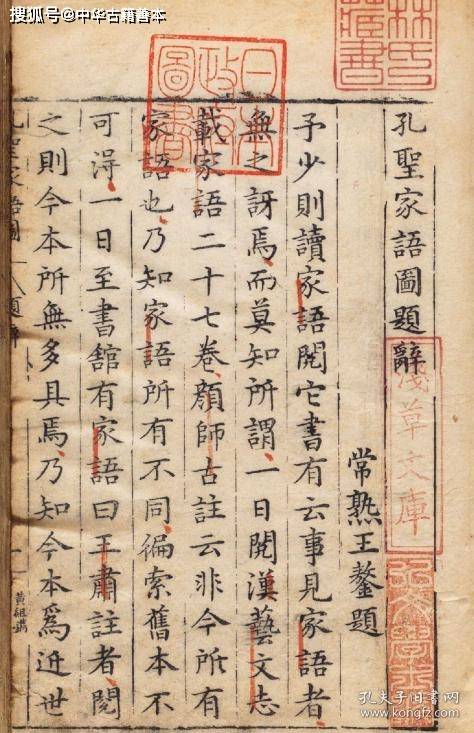 搜狐号@中华古籍善本
林氏藏書
日本政府圖書
淺草文庫
孔聖家語圖題辭
常熟王鏊題
予少則讀家語閱它書有云事見家語者
無之訝焉而莫知所謂一日閱漢藝文志
載家語二十七卷顔師古註云非今所有
家語也乃知家語所有不同徧索舊本不
可得一日至書舘有家語曰王肅註者閱
之則今本所無多具焉乃知今本爲近世
孔聖家語圖
題辭
一
黄組鐫
孔夫子旧书网
kongfz.com